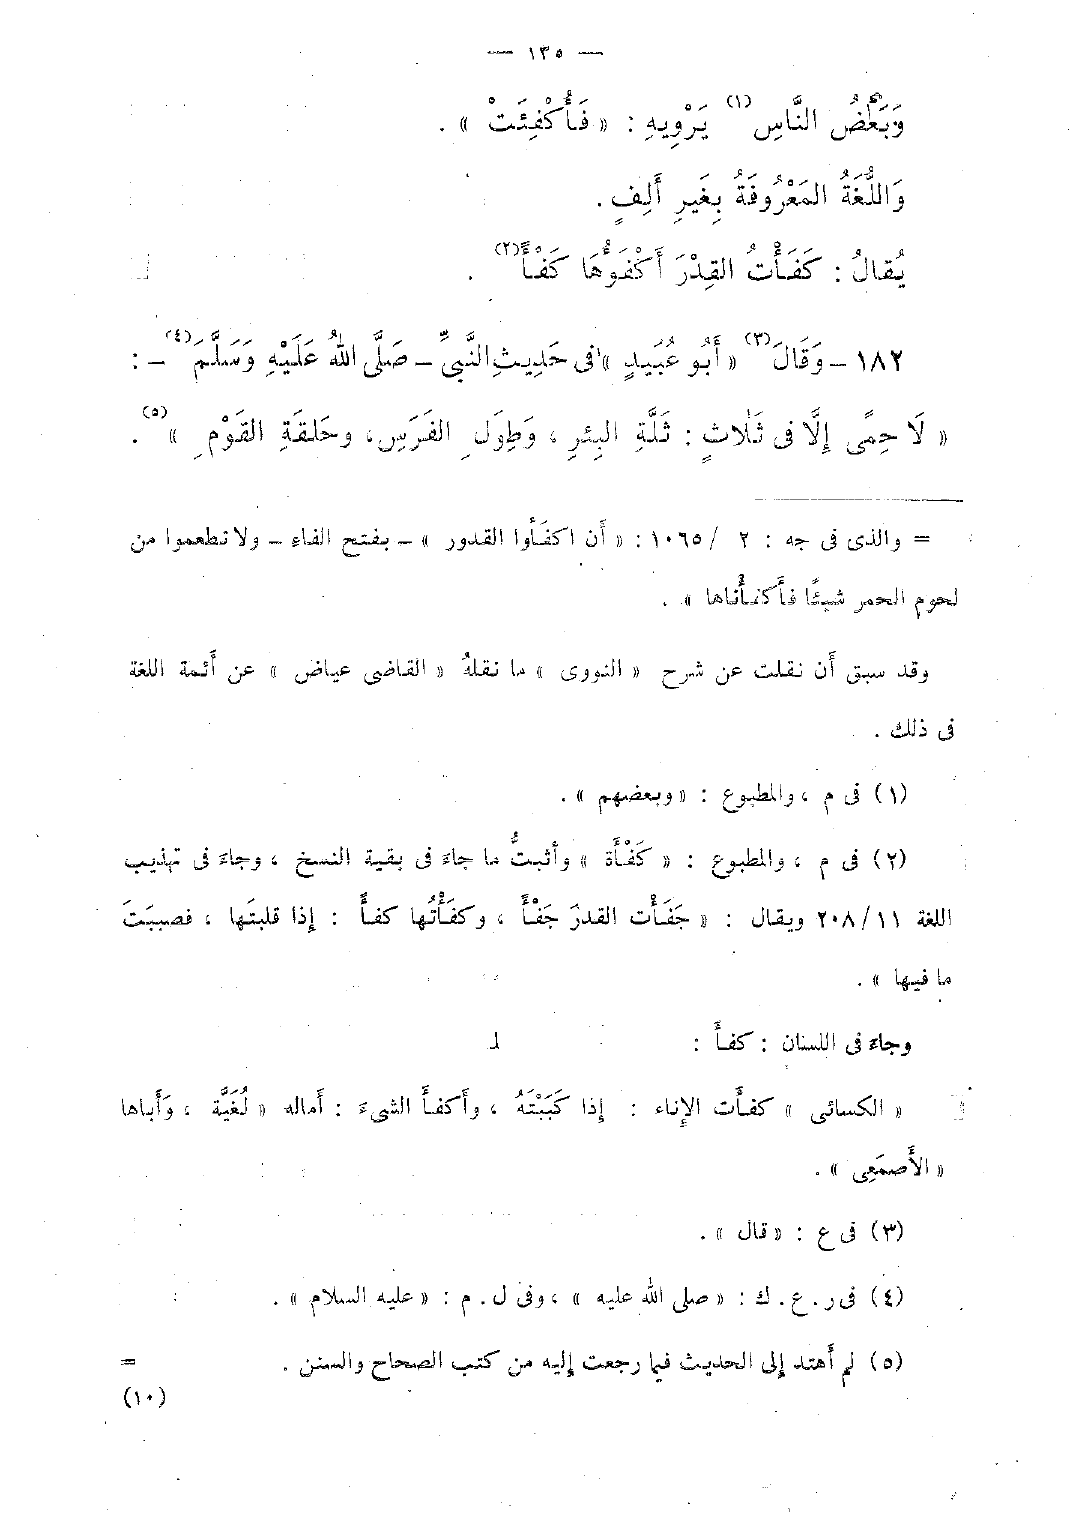 — ١٣٥ —
وَبَعْضُ النَّاسِ (١) يَرْوِيهِ : « فَأُكْفِئَتْ » .
وَاللُّغَةُ المَعْرُوفَةُ بِغَيرِ أَلِفٍ .
يُقالُ : كَفَأْتُ القِدْرَ أَكْفَؤُهَا كَفْأً (٢) .
١٨٢ – وَقَالَ (٣) « أَبُو عُبَيدٍ » فى حَدِيثِ النَّبىِّ – صَلَّى اللهُ عَلَيْهِ وَسَلَّمَ (٤) – :
« لَا حِمًى إِلَّا فى ثَلاثٍ : ثَلَّةِ البِئرِ ، وَطِوَلِ الفَرَسِ، وحَلقَةِ القَوْمِ » (٥) .
= والذى فى جه : ٢ /١٠٦٥ : « أَن اكفَأوا القدور » – بفتح الفاء – ولا تطعموا من
لحوم الحمر شيئًا فأَكفأْناها » .
وقد سبق أَن نقلت عن شرح « النووى » ما نقلهُ « القاضى عياض » عن أَئمة اللغة
فى ذلك .
(١) فى م ، والمطبوع : « وبعضهم » .
(٢) فى م ، والمطبوع : « كَفْأَة » وأَثبتُّ ما جاءَ فى بقية النسخ ، وجاءَ فى تهذيب
اللغة ٢٠٨/١١ ويقال : « جَفَأْت القدرَ جَفْأً ، وكفَأْتُها كفأً : إذا قلبتَها ، فصببَتَ
ما فيها » .
وجاءَ فى اللسان : كفأَ :
« الكسائى » كفأْت الإِناء : إذا كَبَبْتَهُ ، وأَكفأَ الشىءَ : أَماله « لُغَيَّة ، وَأَباها
« الأَصمَعِى » .
(٣) فى ع : « قال » .
(٤) فى ر . ع . ك : « صلى الله عليه » ، وفى ل . م : « عليه السلام » .
(٥) لم أَهتد إلى الحديث فيما رجعت إليه من كتب الصحاح والسنن . =
(١٠)